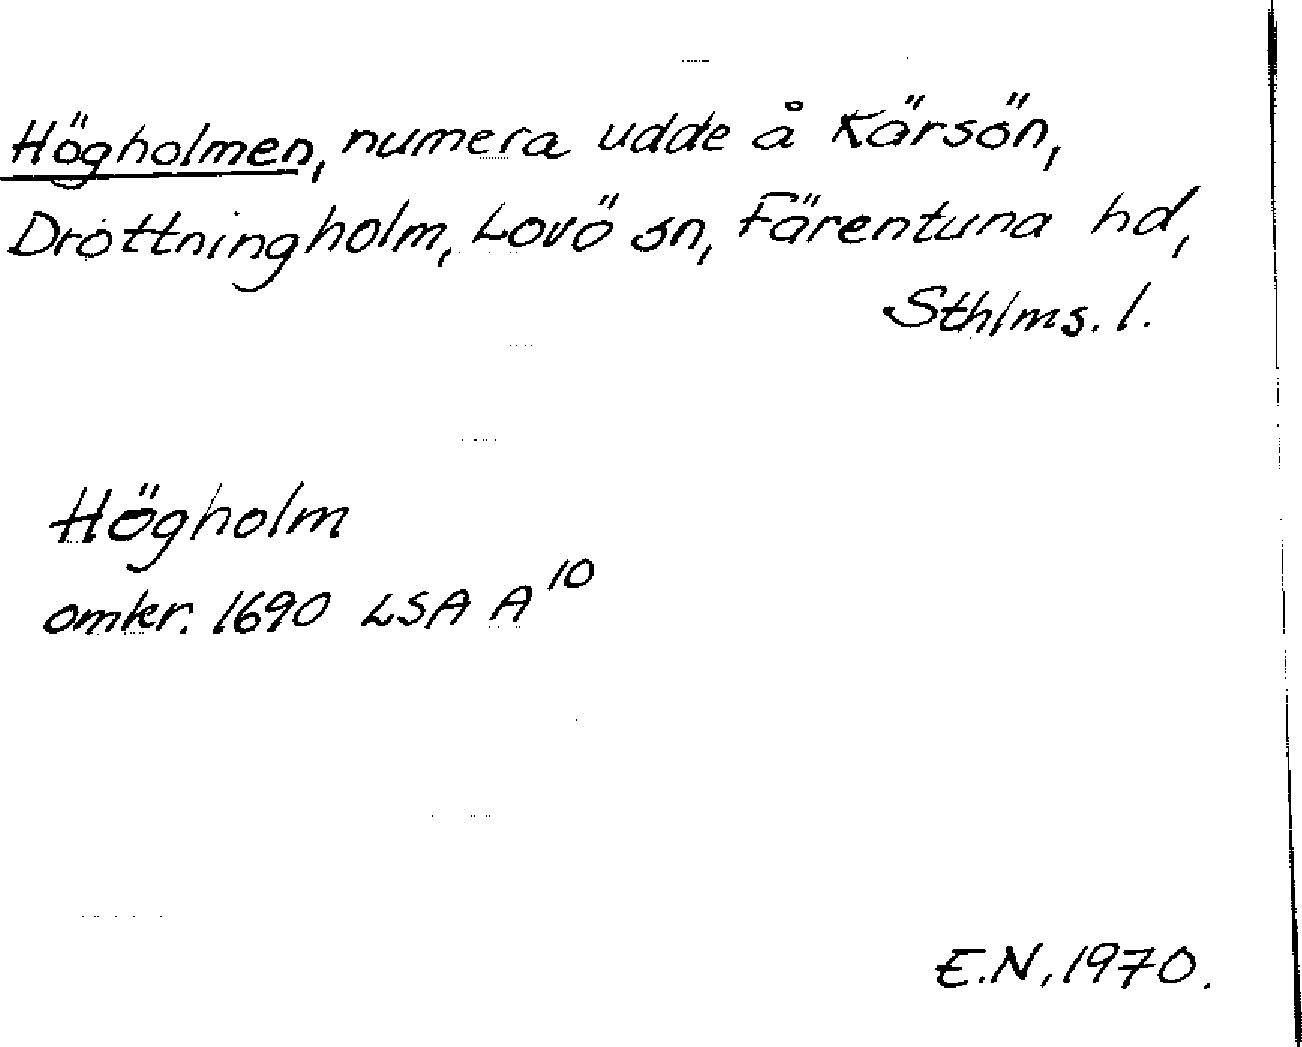 Högholmen, numera udde å Kärsön,
Drottningholm, Lovö sn, Färentuna hd,
Sthlms. l.
Högholm
omkr. 1690 LSA A¹⁰
E.N, 1970.